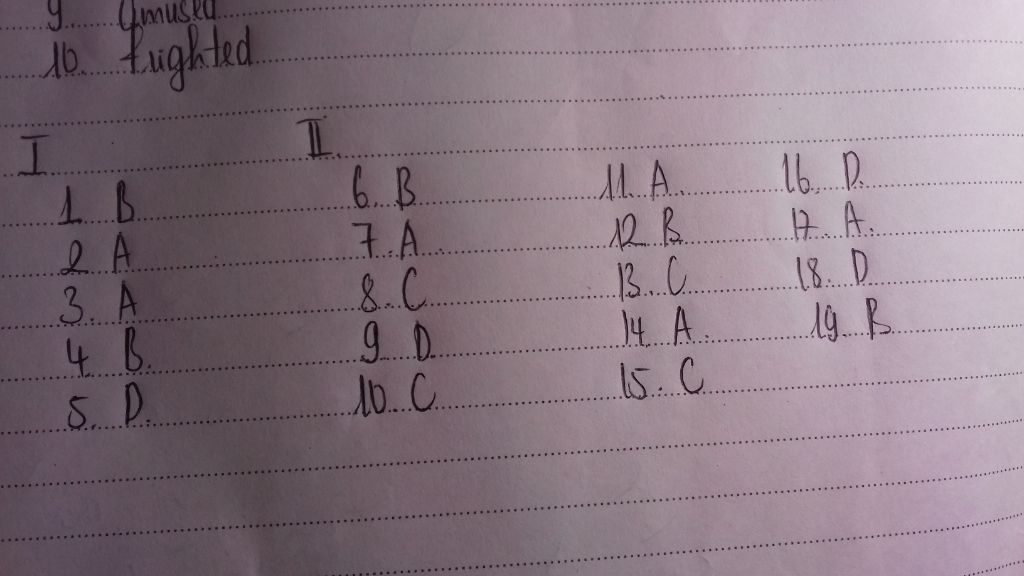 9. Amused
10. frighted
I II
1. B 6. B 11. A. 16. D.
2 A 7. A. 12 B 17. A.
3. A 8. C 13. C 18. D
4 B. 9 D. 14 A. 19 B
5. D. 10. C 15. C